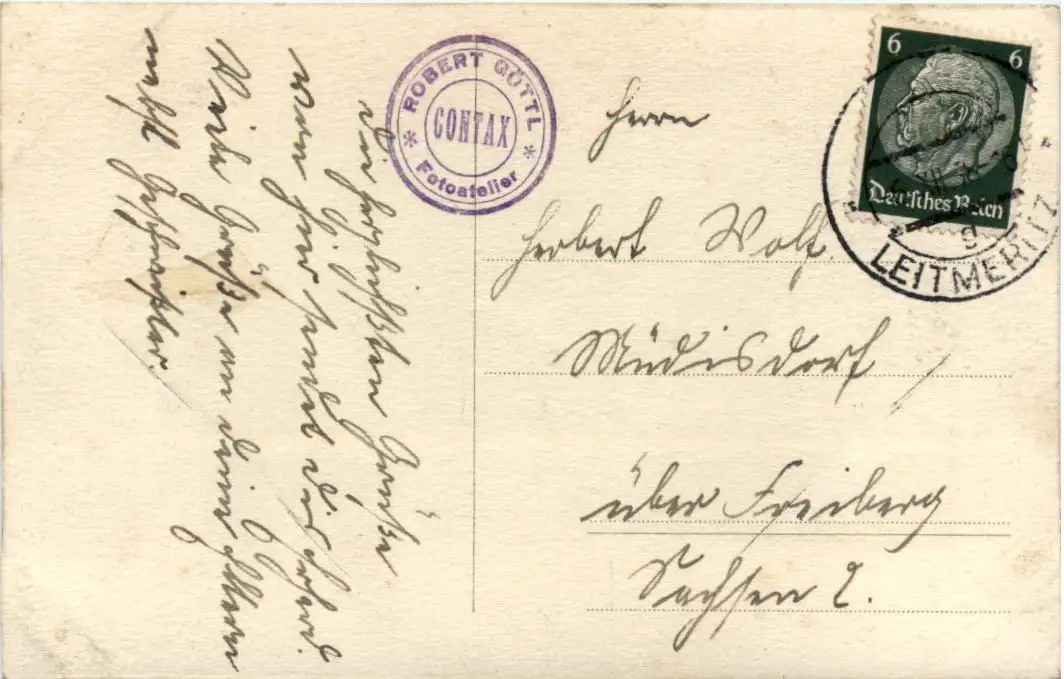 ROBERT GÖTTL
CONTAX
* Fotoatelier *
Die herzlichsten Grüße
von hier sendet dir
Viele Grüße an deine Eltern
nebst Geschwister.
6 6
Deutsches Reich
g
LEITMERITZ
Herrn
Herbert Wolf.
Müdisdorf
über Freiberg
Sachsen 2.